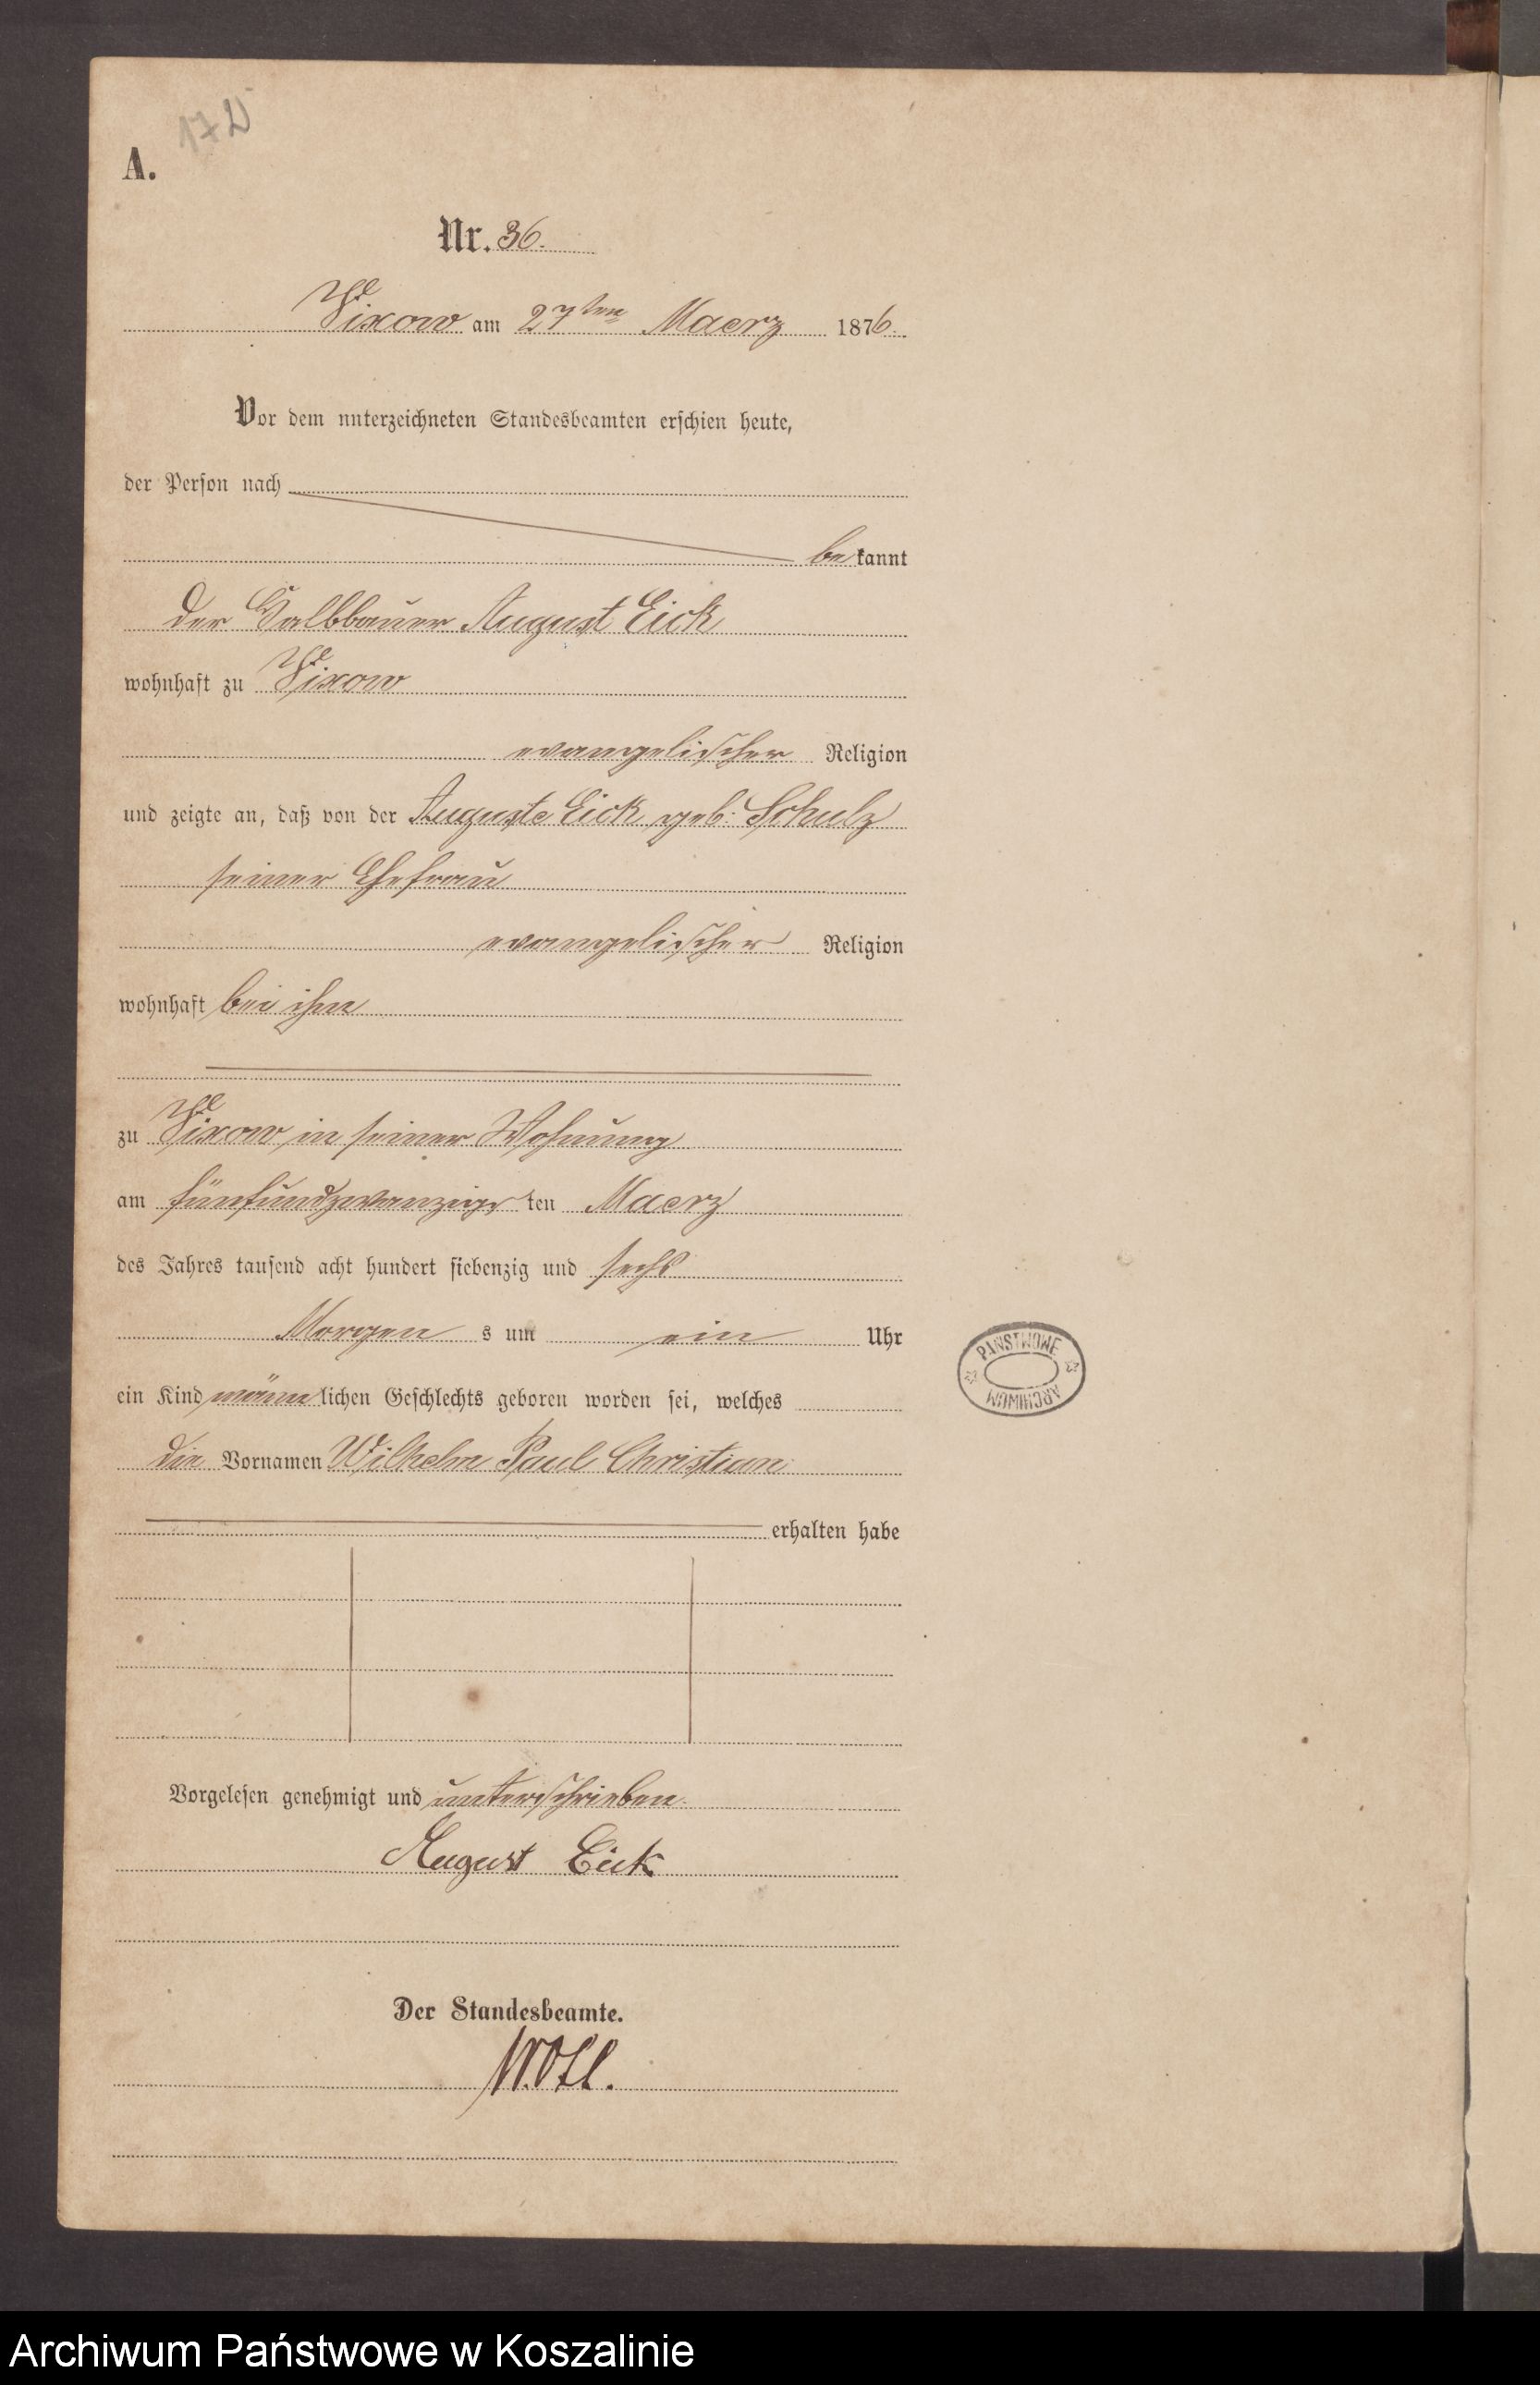 172
A.
Nr. 36.
Vixow am 27ten Maerz 1876.
Vor dem unterzeichneten Standesbeamten erschien heute,
der Person nach
bekannt
der Halbbauer August Eick
wohnhaft zu Vixow
evangelischer Religion
und zeigte an, daß von der Auguste Eick geb. Schulz
seiner Ehefrau
evangelischer Religion
wohnhaft bei ihm
zu Vixow in seiner Wohnung
am fünfundzwanzigsten Maerz
des Jahres tausend acht hundert siebenzig und sechs
Morgens um ein Uhr
ein Kind männlichen Geschlechts geboren worden sei, welches
die Vornamen Wilhelm Paul Christian
erhalten habe
Vorgelesen genehmigt und unterschrieben.
August Eick
Der Standesbeamte.
PAŃSTWOWE
ARCHIWUM
Archiwum Państwowe w Koszalinie